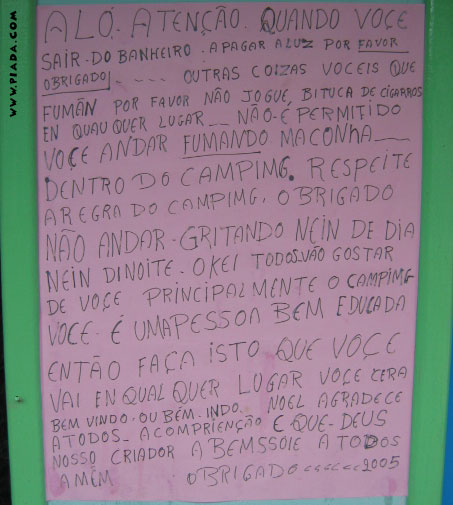 WWW.PIADA.COM
ALÓ. ATENÇÃO. QUANDO VOÇE
SAIR. DO BANHEIRO. APAGAR A LUZ POR FAVOR
OBRIGADO!_ - - - . OUTRAS COIZAS VOCEIS QUE
FUMÃN POR FAVOR NÃO JOGUE, BITUCA DE CIGARROS
EN QUAU QUER LUGAR__ NÃO-É PERMITIDO
VOÇE ANDAR FUMANDO MACONHA___
DENTRO DO CAMPIMG. RESPEITE
A REGRA DO CAMPIMG. OBRIGADO
NÃO ANDAR - GRITANDO NEIN DE DIA
NEIN DINOITE. OKEI TODOS VÃO GOSTAR
DE VOÇE PRINCIPALMENTE O CAMPIMG
VOCE É UMAPESSOA BEM EDUCADA
ENTÃO FAÇA ISTO QUE VOÇE
VAI EN QUAL QUER LUGAR VOCE CERA
BEM VINDO-OU BEM-INDO. NOEL AGRADECE
ATODOS_ ACOMPRIENÇÃO E QUE-DEUS
NOSSO CRIADOR A BEMSSOIE A TODOS
AMÉM OBRIGADO <<<<<<2005